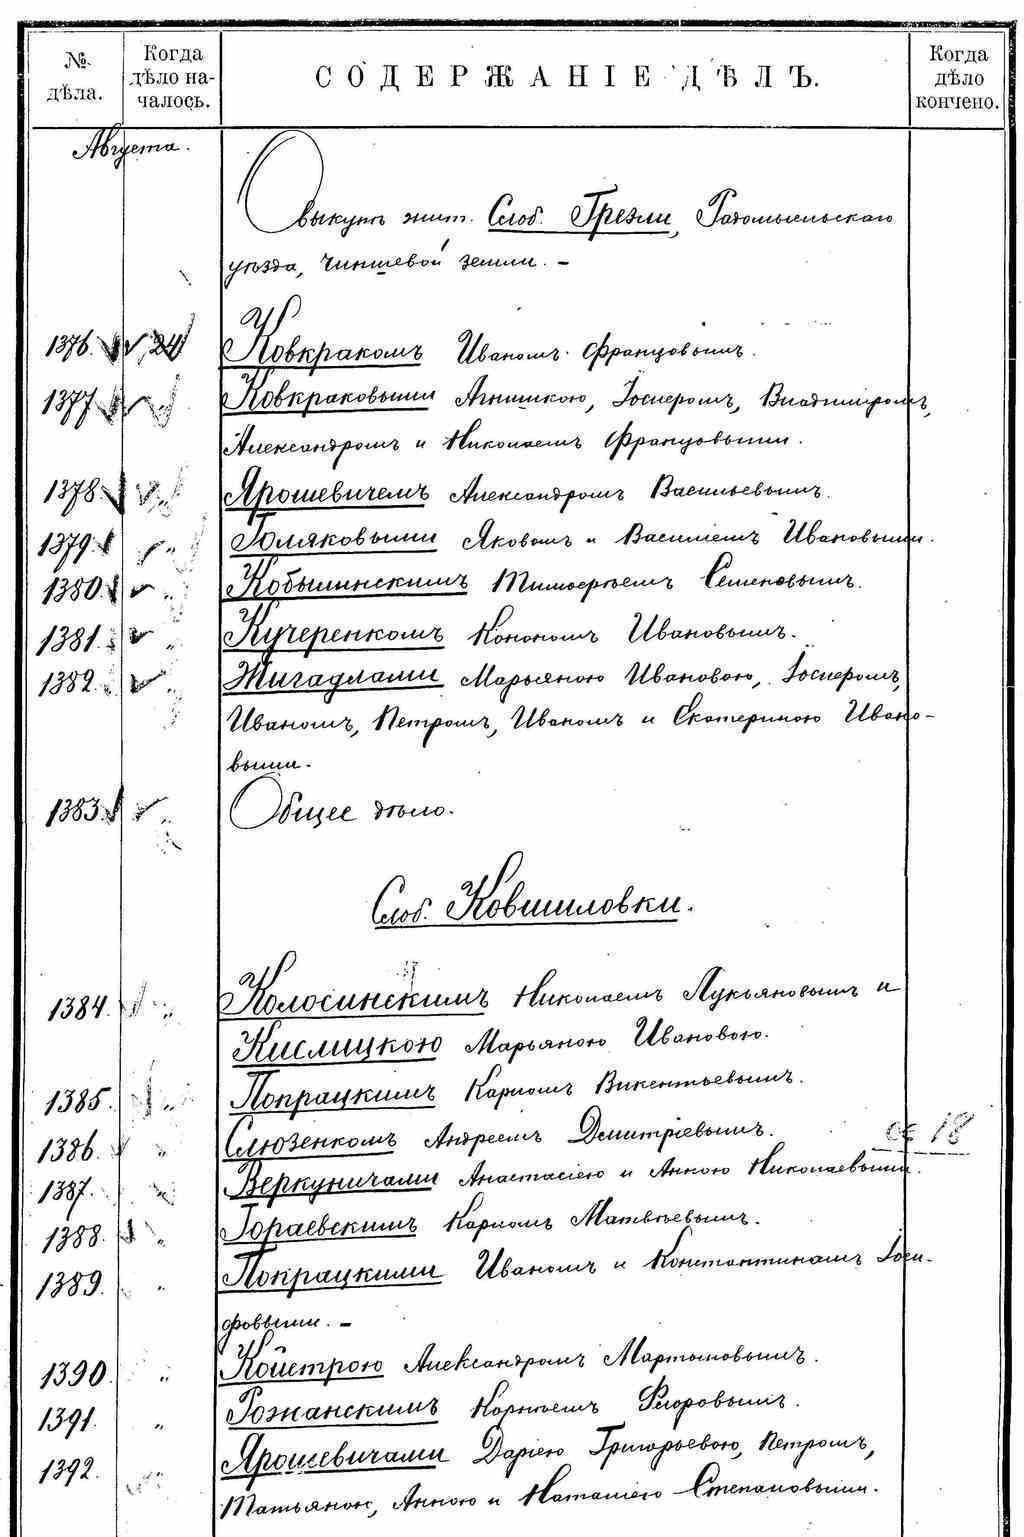 № дѣла.
Когда дѣло на-
чалось.
СОДЕРЖАНІЕ ДѢЛЪ.
Когда дѣло кончено.
Августа.
О выкупѣ жит. Слоб. Грезли, Радомысльскаго
уѣзда, чиншевой земли. –
1376. 24 Ковкракомъ Иваномъ Францовымъ.
1377 Ковкраковыми Агнишкою, Іосифомъ, Владиміромъ,
Александромъ и Николаемъ Францовыми.
1378 Ярошевичемъ Александромъ Васильевымъ.
1379 „ Голяковыми Яковомъ и Василіемъ Ивановыми.
1380. „ Кобылинскимъ Тимофѣемъ Семеновымъ.
1381. „ Кучеренкомъ Конономъ Ивановымъ.
1382. „ Жигадлами Марьяною Ивановою, Іосифомъ,
Иваномъ, Петромъ, Иваномъ и Екатериною Ивано-
выми.
1383. „ Общее дѣло.
Слоб. Ковшиловки.
1384. „ Колосинскимъ Николаемъ Лукьяновымъ и
Кислицкою Марьяною Ивановою.
1385. „ Попрацкимъ Карломъ Викентьевымъ.
1386. „ Слюзенкомъ Андреемъ Дмитріевымъ. 18
1387. „ Веркуничами Анастасіею и Анною Николаевыми.
1388. „ Гораевскимъ Карломъ Матвѣевымъ.
1389. „ Покрацкими Иваномъ и Константиномъ Іоси-
фовыми. –
1390. „ Койстрою Александромъ Мартыновымъ.
1391. „ Рожанскимъ Корнѣемъ Флоровымъ.
1392. „ Ярошевичами Даріею Григорьевою, Петромъ,
Татьяною, Анною и Наталіею Степановыми.